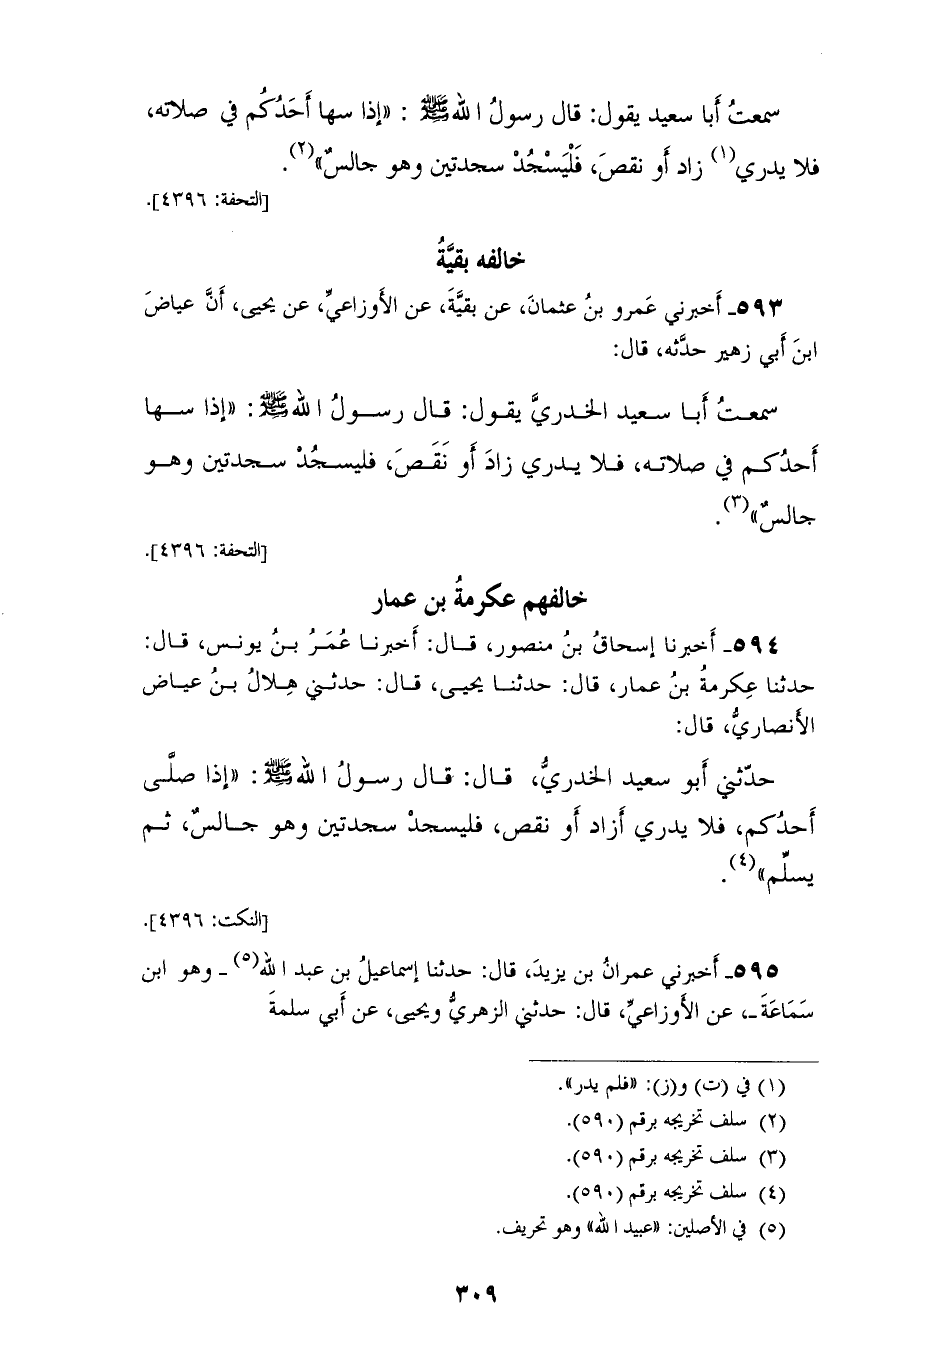 سمعتُ أبا سعيد يقول: قال رسولُ الله ﷺ : «إذا سها أَحَدُكُم في صلاته،
فلا يدري(١) زاد أو نقصَ، فَلْيَسْجُدْ سجدتين وهو جالسٌ»(٢).
[التحفة: ٤٣٩٦].
خالفه بقيَّةُ
٥٩٣ـ أخبرني عَمرو بنُ عثمانَ، عن بقيَّةَ، عن الأوزاعيِّ، عن يحيى، أنَّ عياضَ
ابنَ أبي زهير حدَّثه، قال:
سمعـتُ أبـا سـعيد الخـدريَّ يقـول: قـال رسـولُ الله ﷺ: «إذا سـها
أحدُكـم في صلاتـه، فـلا يـدري زادَ أو نَقَـصَ، فليسـجُدْ سـجدتين وهـو
جالسٌ»(٣).
[التحفة: ٤٣٩٦].
خالفهم عكرمةُ بن عمار
٥٩٤ـ أخبرنا إسحاقُ بنُ منصور، قـال: أخبرنـا عُمَـرُ بـنُ يونـس، قـال:
حدثنا عِكرمةُ بنُ عمار، قال: حدثنـا يحيـى، قـال: حدثـني هِـلالُ بـنُ عيـاض
الأنصاريُّ، قال:
حدّثني أبو سعيد الخدريُّ، قـال: قـال رسـولُ الله ﷺ: «إذا صلَّـى
أحدُكم، فلا يدري أزاد أو نقص، فليسجدْ سجدتين وهو جـالسٌ، ثـم
يسلِّم»(٤).
[النكت: ٤٣٩٦].
٥٩٥ـ أخبرني عمرانُ بن يزيدَ، قال: حدثنا إسماعيلُ بن عبد الله(٥) ـ وهو ابن
سَمَاعَةَ ـ، عن الأوزاعيِّ، قال: حدثني الزهريُّ ويحيى، عن أبي سلمةَ
(١) في (ت) و(ز): «فلم يدر».
(٢) سلف تخريجه برقم (٥٩٠).
(٣) سلف تخريجه برقم (٥٩٠).
(٤) سلف تخريجه برقم (٥٩٠).
(٥) في الأصلين: «عبيد الله» وهو تحريف.
٣٠٩